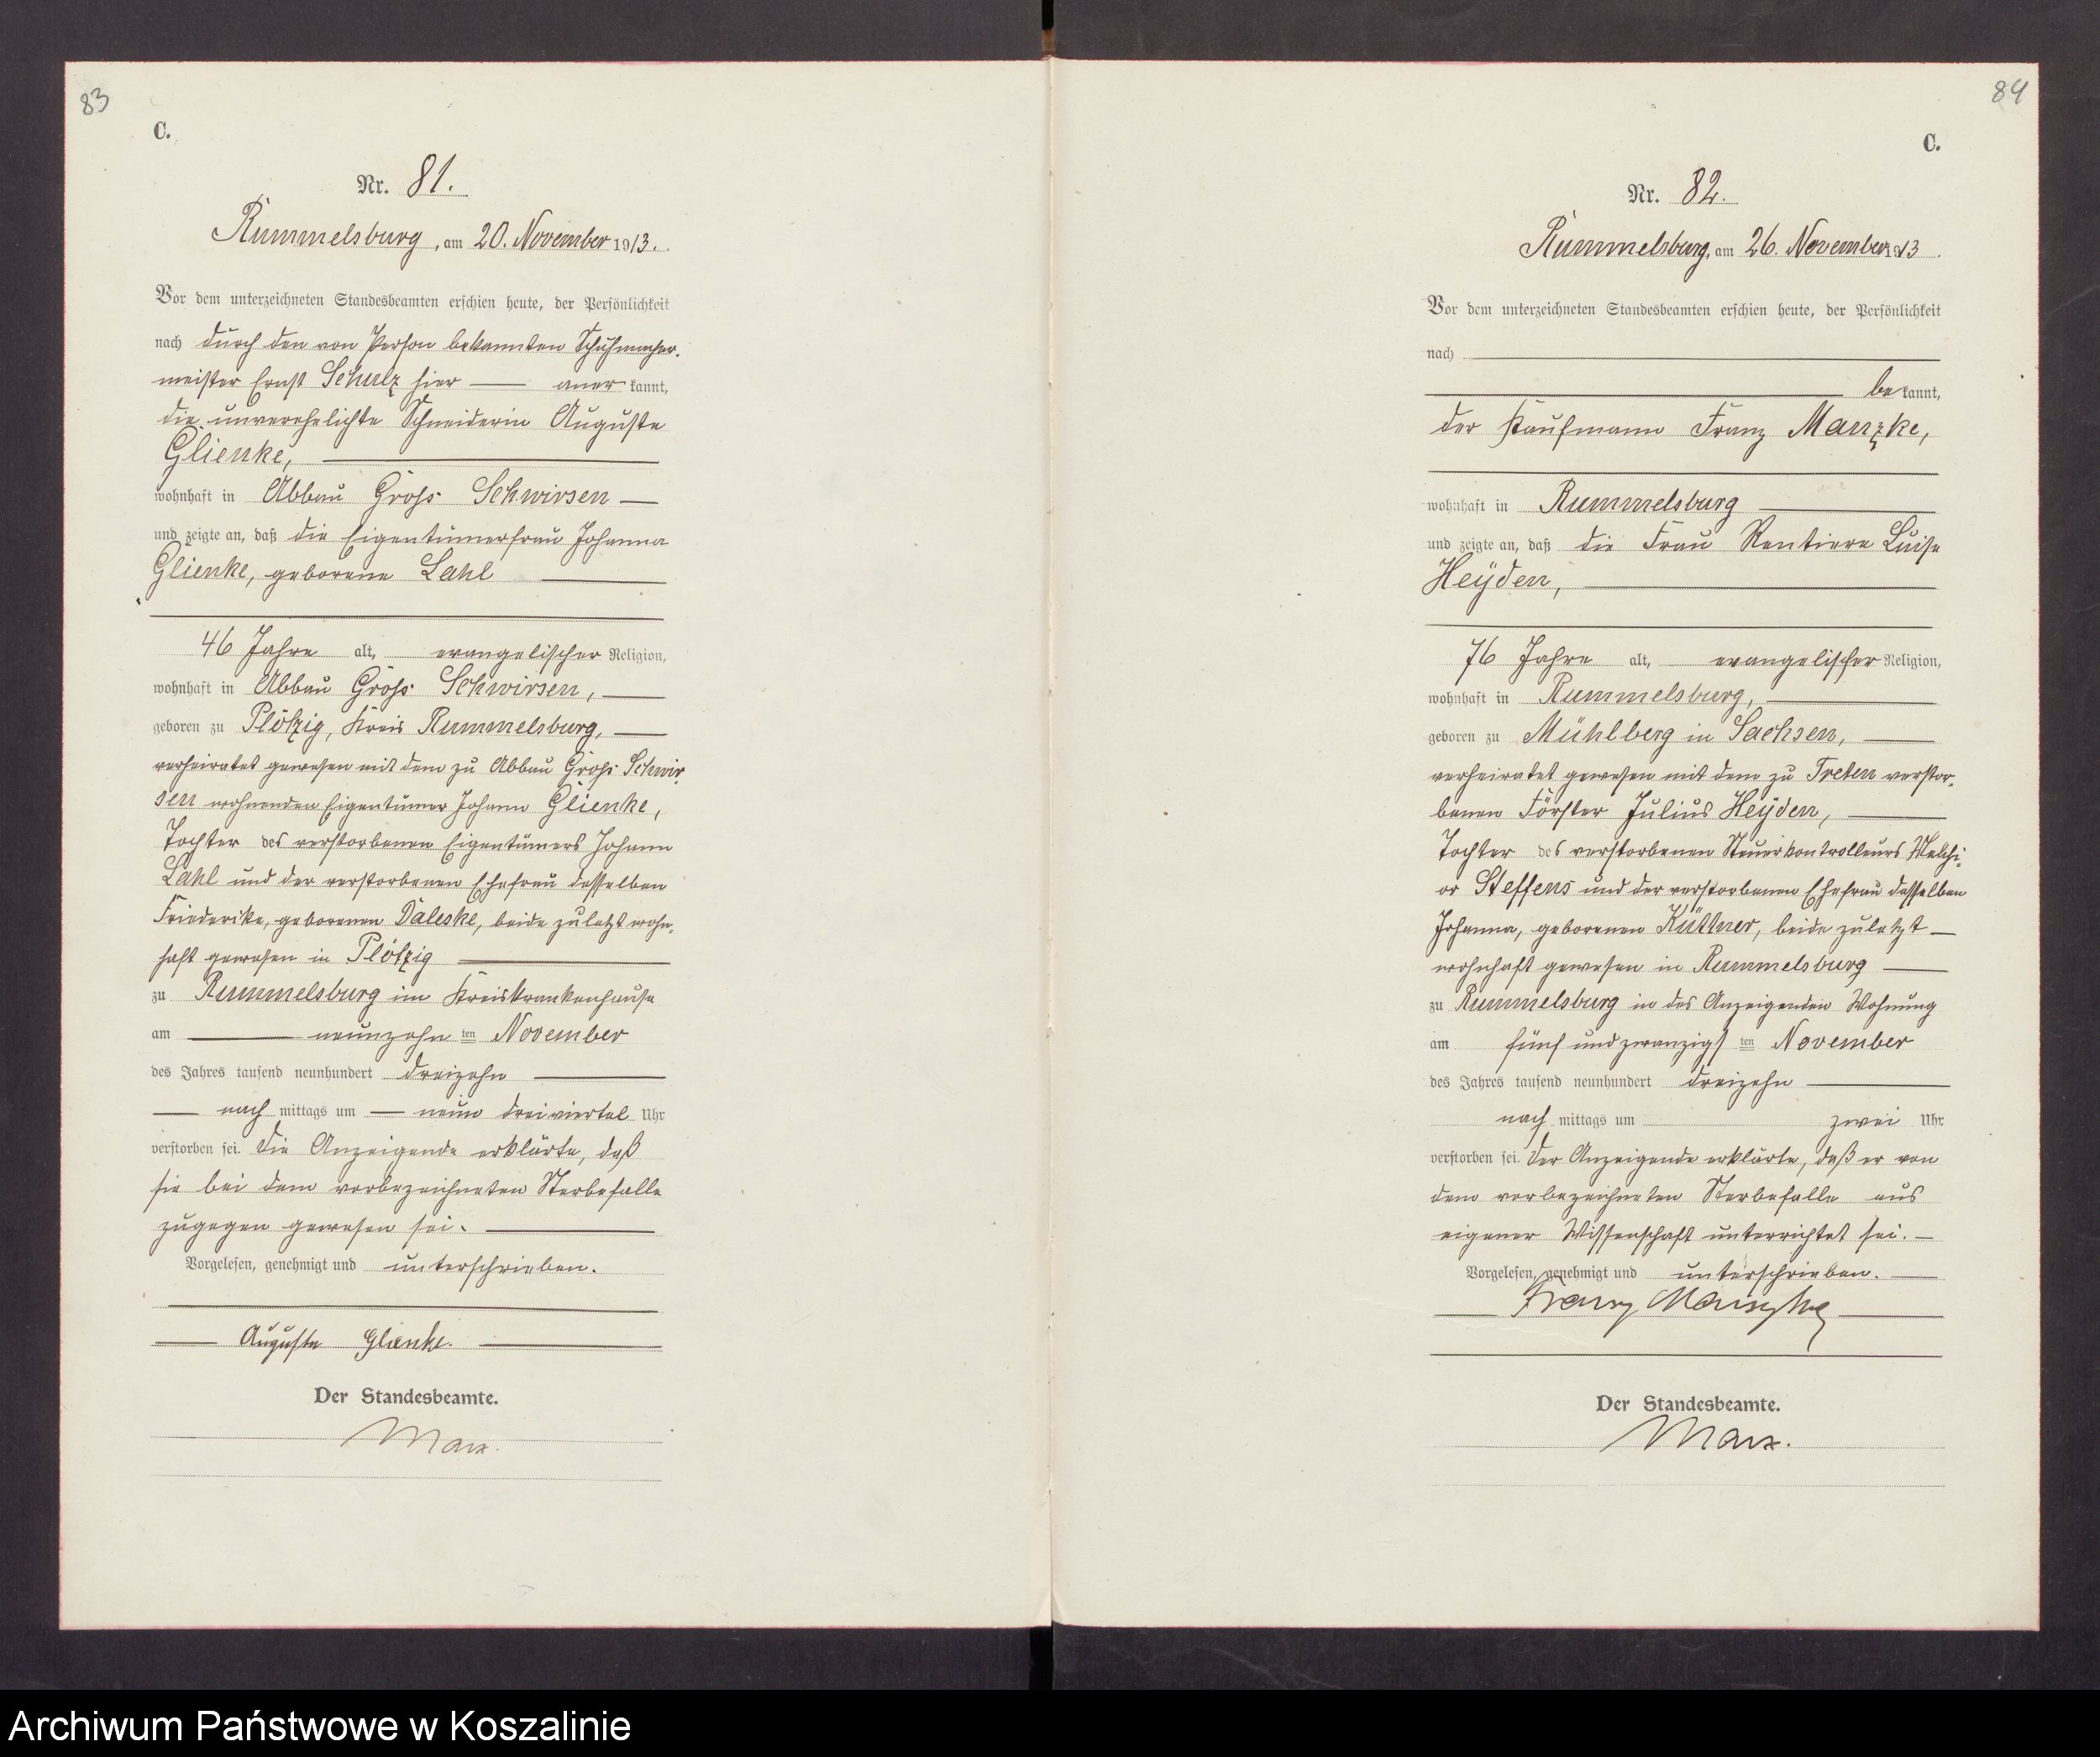 83
C.
Nr. 81.
Rummelsburg, am 20. November 1913.
Vor dem unterzeichneten Standesbeamten erschien heute, der Persönlichkeit
nach durch den von Person bekannten Schuhmacher-
meister Ernst Schulz hier — aner kannt,
die unverehelichte Schneiderin Auguste
Glienke,
wohnhaft in Abbau Groß Schwirsen —
und zeigte an, daß die Eigentümerfrau Johanna
Glienke, geborene Lahl
46 Jahre alt, evangelischer Religion,
wohnhaft in Abbau Groß Schwirsen, —
geboren zu Plötzig, Kreis Rummelsburg, —
verheiratet gewesen mit dem zu Abbau Groß Schwir-
sen wohnenden Eigentümer Johann Glienke,
Tochter des verstorbenen Eigentümers Johann
Lahl und der verstorbenen Ehefrau desselben
Friederike, geborenen Daleske, beide zuletzt wohn-
haft gewesen in Plötzig —
zu Rummelsburg im Kreiskrankenhause
am — neunzehn ten November
des Jahres tausend neunhundert dreizehn —
— nach mittags um — neun dreiviertel Uhr
verstorben sei. Die Anzeigende erklärte, daß
sie bei dem vorbezeichneten Sterbefalle
zugegen gewesen sei. —
Vorgelesen, genehmigt und unterschrieben.
— Auguste Glienke. —
Der Standesbeamte.
84
C.
Nr. 82.
Rummelsburg, am 26. November 1913.
Vor dem unterzeichneten Standesbeamten erschien heute, der Persönlichkeit
nach —
— be kannt,
der Kaufmann Franz Manzke,
wohnhaft in Rummelsburg —
und zeigte an, daß die Frau Rentiere Luise
Heÿden, —
76 Jahre alt, — evangelischer Religion,
wohnhaft in Rummelsburg, —
geboren zu Mühlberg in Sachsen, —
verheiratet gewesen mit dem zu Treten verstor-
benen Förster Julius Heÿden, —
Tochter des verstorbenen Steuerkontrolleurs Melchi-
or Steffens und der verstorbenen Ehefrau desselben
Johanna, geborenen Küttner, beide zuletzt —
wohnhaft gewesen in Rummelsburg —
zu Rummelsburg in des Anzeigenden Wohnung
am fünf und zwanzigs ten November
des Jahres tausend neunhundert dreizehn —
nach mittags um zwei Uhr
verstorben sei. Der Anzeigende erklärte, daß er von
dem vorbezeichneten Sterbefalle aus
eigener Wissenschaft unterrichtet sei. —
Vorgelesen, genehmigt und unterschrieben. —
— Franz Manzke —
Der Standesbeamte.
Archiwum Państwowe w Koszalinie